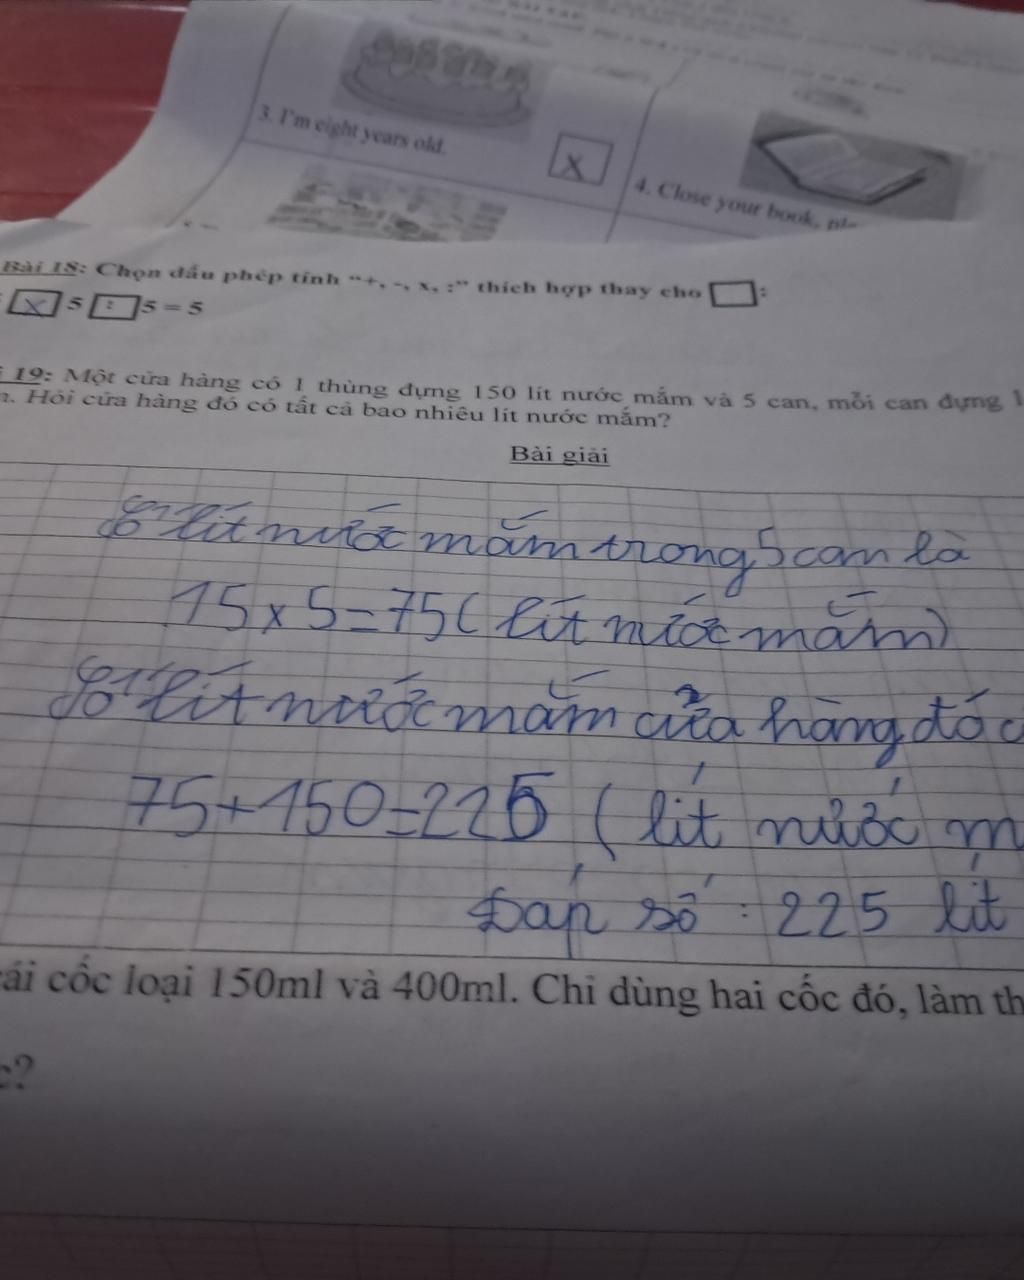 3. I'm eight years old.
X
4. Close your book,
Bài 18: Chọn dấu phép tính "+, -, x, :" thích hợp thay cho :
x 5 : 5 = 5
19: Một cửa hàng có 1 thùng đựng 150 lít nước mắm và 5 can, mỗi can đựng 1
n. Hỏi cửa hàng đó có tất cả bao nhiêu lít nước mắm?
Bài giải
Số lít nước mắm trong 5 can là
15 x 5 = 75 ( lít nước mắm)
Số lít nước mắm cửa hàng đó c
75 + 150 = 225 ( lít nước m
Đáp số : 225 lít
cái cốc loại 150ml và 400ml. Chỉ dùng hai cốc đó, làm th
c?